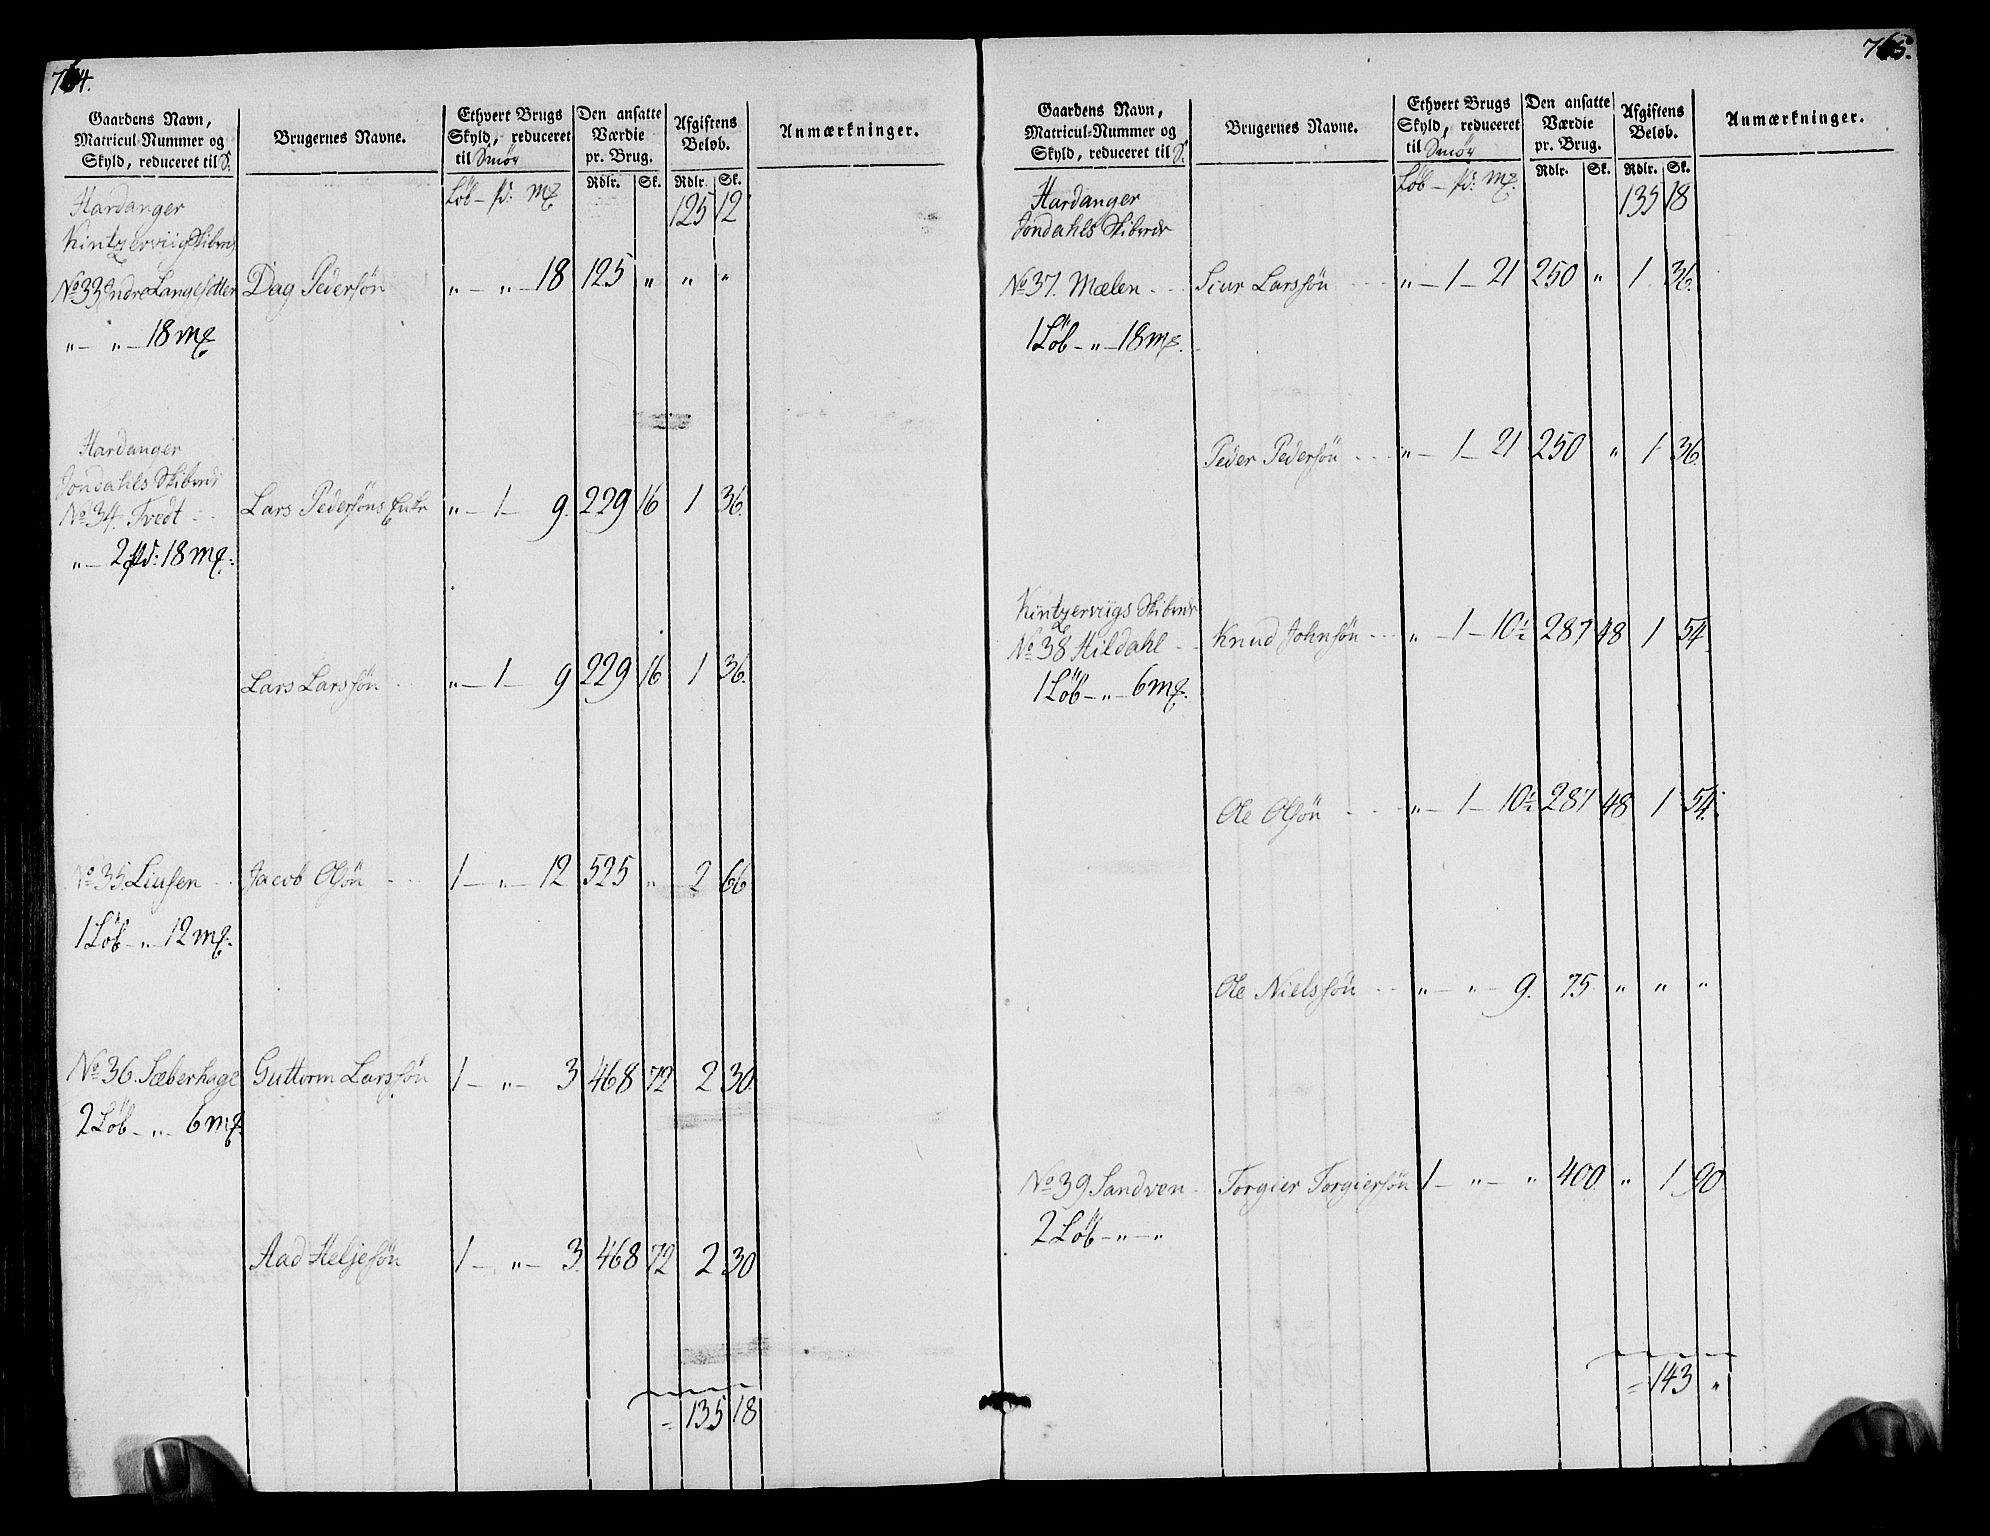 764.
Gaardens Navn, Matricul-Nummer og Skyld, reduceret til S.
Brugernes Navne.
Ethvert Brugs Skyld, reduceret til Smör
Den ansatte Værdie pr. Brug.
Afgiftens Beløb.
Anmærkninger.
Løb - pd: mg
Rdlr. Sk. Rdlr. Sk.
Hardanger 125 12
Kintzerviigs Skibrede
No 33 Indre Langesetter Dag Pedersön „ - „ - 18 125 „ „ „
„ - „ - 18 mg
Hardanger
Jondahls Skibrede
No 34. Tvedt Lars Pedersöns Enke „ - 1 - 9. 229 16 1 36.
„ - 2 pd: 18 mg.
Lars Larssön „ - 1 - 9 229 16 1 36.
No 35. Liusen Jacob Olsön 1 - „ - 12 525 „ 2 66
1 Løb - „ - 12 mg.
No 36. Sæberhage Guttorm Larssön 1 - „ - 3 468 72 2 30.
2 Løb - „ - 6 mg.
Aad Heljesön 1 - „ - 3. 468 72 2 30
= 135 18
765.
Gaardens Navn, Matricul-Nummer og Skyld, reduceret til S.
Brugernes Navne.
Ethvert Brugs Skyld, reduceret til Smör
Den ansatte Værdie pr. Brug.
Afgiftens Beløb.
Anmærkninger.
Løb - pd: mg.
Rdlr. Sk. Rdlr. Sk.
Hardanger 135 18
Jondahls Skibrede
No 37. Mælen Siur Larssön „ - 1 - 21 250 „ 1 36.
1 Løb - „ - 18 mg.
Peder Pedersön „ - 1 - 21 250 „ 1 36.
Kintzerviigs Skibrede
No 38 Hildahl Knud Johnsön „ - 1 - 10½ 287 48 1 54.
1 Løb - „ - 6 mg.
Ole Olsön „ - 1 - 10½ 287 48 1 54.
Ole Nielssön „ - „ - 9. 75 „ „ „
No 39 Sandven Torgier Torgiersön 1 - „ - „ 400 „ 1 90
2 Løb - „ - „
= 143 „